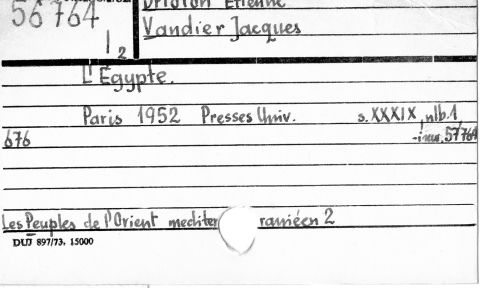 56 764
Drioton Etienne
1 2
Vandier Jacques
L'Égypte.
Paris 1952 Presses Univ. s. XXXIX, nlb. 1,
676
-inw. 57/764
Les Peuples de l'Orient mediter ranieen 2
DUJ 897/73. 15000